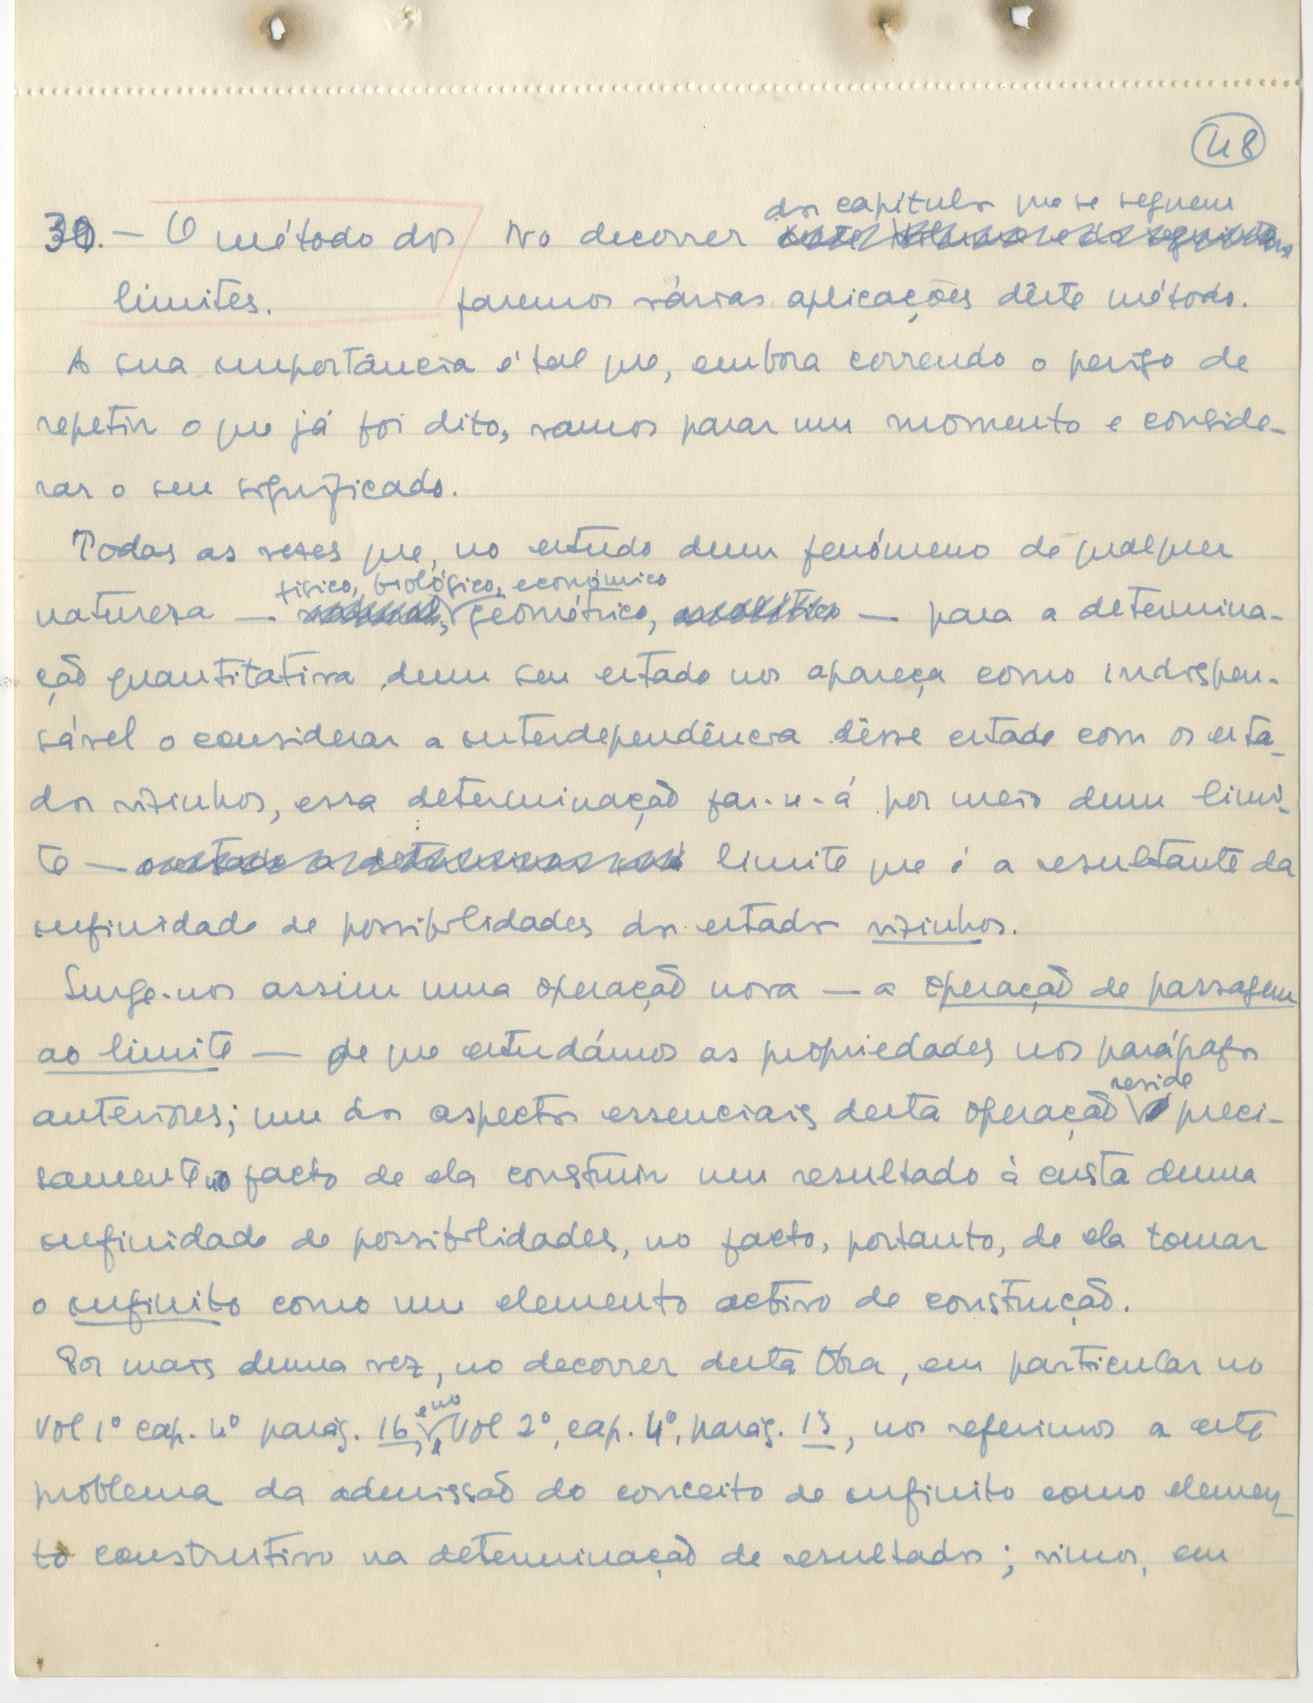 48
dos capítulos que se seguem
30. — O método dos No decorrer
limites. faremos várias aplicações dêste método.
A sua importância é tal que, embora correndo o perigo de
repetir o que já foi dito, vamos parar um momento e conside-
rar o seu significado.
Todas as vezes que, no estudo dum fenómeno de qualquer
físico, biológico, económico
natureza — natural, geométrico, analítico — para a determina-
ção quantitativa dum seu estado nos apareça como indispen-
sável o considerar a interdependência dêsse estado com os esta-
dos vizinhos, essa determinação far-se-á por meio dum limi-
te — limite que é a resultante da
infinidade de possibilidades dos estados vizinhos.
Surge-nos assim uma operação nova — a operação de passagem
ao limite — de que estudámos as propriedades nos parágrafos
reside
anteriores; um dos aspectos essenciais desta operação preci-
samente no facto de ela construir um resultado à custa duma
infinidade de possibilidades, no facto, portanto, de ela tomar
o infinito como um elemento activo de construção.
Por mais duma vez, no decorrer desta Obra, em particular no
e no
Vol 1º cap. 4º parág. 16, Vol 2º, cap. 4º, parág. 13, nos referimos a este
problema da admissão do conceito de infinito como elemen-
to construtivo na determinação de resultados; vimos, em